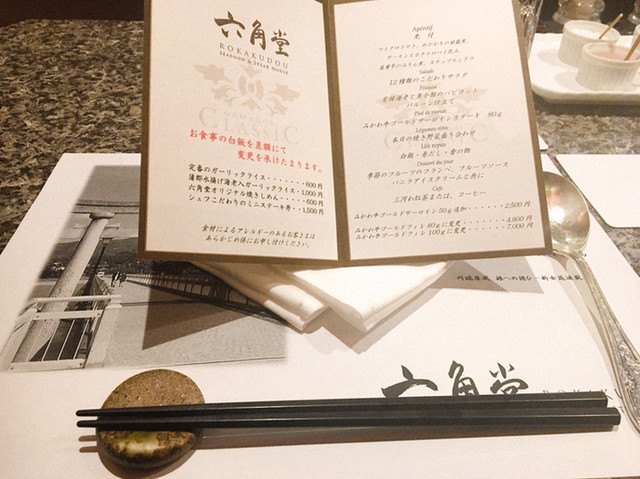 六角堂
ROKAKUDOU
SEAFOOD & STEAK HOUSE
GAMAGORI
CLASSIC
お食事の白飯を差額にて
変更を承けたまります。
定番のガーリックライス・・・・・・・・600円
蒲郡水揚げ海老入ガーリックライス・1,000円
六角堂オリジナル焼きしめん・・・・・600円
シェフこだわりのミニステーキ丼・・1,500円
食材によるアレルギーのあるお客さまは
あらかじめ係にお申し付けください。
Apéritif
先付
マイクロトマト、めひかりの甘露煮、
サーモンとホタテのパイ包み、
Salade
12種類のこだわりサラダ
Poisson
バルーン仕立て
Plat de viande
みかわ牛ゴールドサーロインステーキ 80g
Légumes rôtis
本日の焼き野菜盛り合わせ
Un repas
白飯・赤だし・香の物
Dessert du jour
季節のフルーツのフランベ、フルーツソース
バニラアイスクリームと共に
Café
三河和紅茶または、コーヒー
みかわ牛ゴールドサーロイン50g追加・・・・・・2,500円
みかわ牛ゴールドフィレ80gに変更・・・・・・4,800円
みかわ牛ゴールドフィレ100gに変更・・・・・・7,000円
六角堂